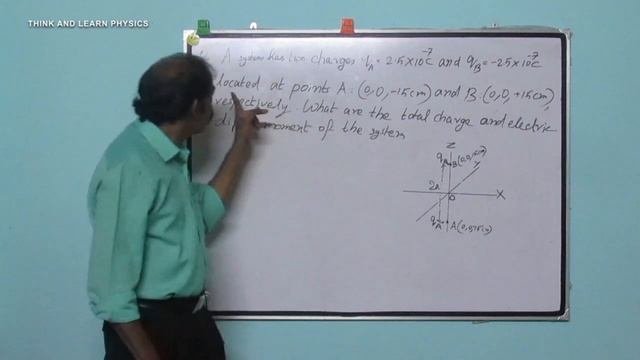 THINK AND LEARN PHYSICS
A system has two charges qA = 2.5 x 10⁻⁷C and qB = -2.5 x 10⁻⁷C
located at points A: (0,0,-15cm) and B: (0,0,+15cm)
respectively. What are the total charge and electric
moment of the system
Z
qB B(0,0,15cm)
Y
2a
O
X
qA A(0,0,-15cm)